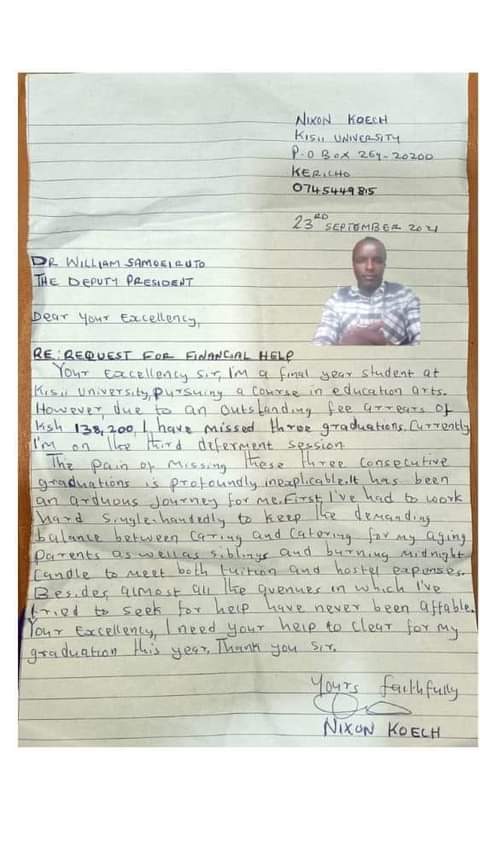 NIXON KOECH
KISII UNIVERSITY
P-O BOX 264-20200
KERICHO
0745449815
23RD SEPTEMBER 2021
DR WILLIAM SAMOEI RUTO
THE DEPUTY PRESIDENT
Dear Your Excellency,
RE: REQUEST FOR FINANCIAL HELP
Your Excellency Sir, I'm a final year student at
Kisii University, pursuing a course in education arts.
However, due to an outstanding fee arrears of
Ksh 138,200, I have missed three graduations. Currently
I'm on the third deferment session
The pain of missing these three consecutive
graduations is profoundly inexplicable. It has been
an arduous journey for me. First, I've had to work
hard single-handedly to keep the demanding
balance between caring and catering for my aging
parents as well as siblings and burning midnight
candle to meet both tuition and hostel expenses.
Besides, almost all the avenues in which I've
tried to seek for help have never been affable.
Your Excellency, I need your help to clear for my
graduation this year. Thank you Sir.
Yours faithfully
NIXON KOECH